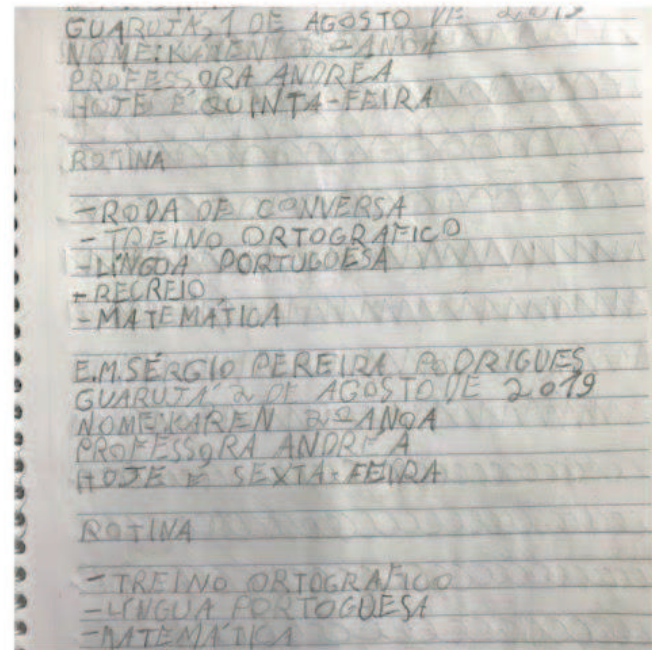 GUARUJÁ, 1 DE AGOSTO DE 2019
NOME: KAREN 2º ANO A
PROFESSORA ANDREA
HOJE É QUINTA-FEIRA
ROTINA
- RODA DE CONVERSA
- TREINO ORTOGRAFICO
- LÍNGUA PORTUGUESA
- RECREIO
- MATEMÁTICA
E.M. SÉRGIO PEREIRA RODRIGUES
GUARUJÁ 2 DE AGOSTO DE 2019
NOME: KAREN 2º ANO A
PROFESSORA ANDREA
HOJE É SEXTA-FEIRA
ROTINA
- TREINO ORTOGRAFICO
- LÍNGUA PORTOGUESA
- MATEMÁTICA